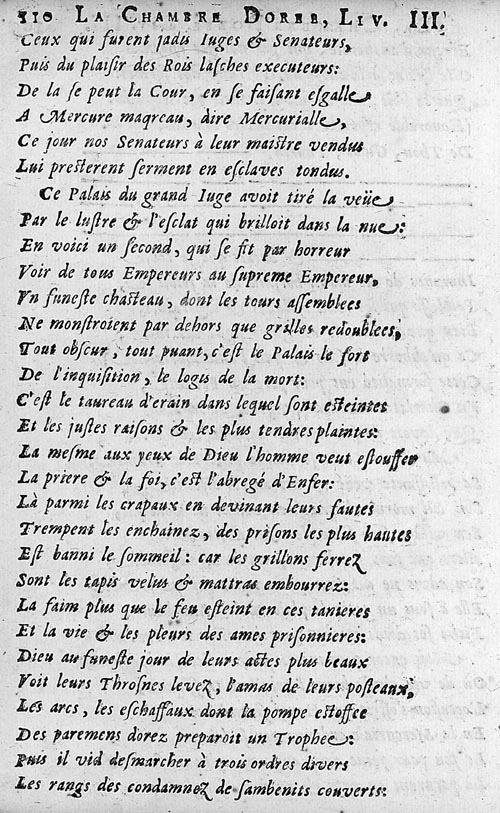 110 LA CHAMBRE DOREE, LIV. III.
Ceux qui furent jadis Iuges & Senateurs,
Puis du plaisir des Rois lasches executeurs:
De la se peut la Cour, en se faisant esgalle
A Mercure maqreau, dire Mercurialle,
Ce jour nos Senateurs à leur maistre vendus
Lui presterent serment en esclaves tondus.
Ce Palais du grand Iuge avoit tiré la veüe
Par le lustre & l'esclat qui brilloit dans la nue:
En voici un second, qui se fit par horreur
Voir de tous Empereurs au supreme Empereur,
Vn funeste chasteau, dont les tours assemblees
Ne monstroient par dehors que grilles redoublees,
Tout obscur, tout puant, c'est le Palais le fort
De l'inquisition, le logis de la mort:
C'est le taureau d'erain dans lequel sont esteintes
Et les justes raisons & les plus tendres plaintes:
La mesme aux yeux de Dieu l'homme veut estouffer
La priere & la foi, c'est l'abregé d'Enfer:
Là parmi les crapaux en devinant leurs fautes
Trempent les enchainez, des prisons les plus hautes
Est banni le sommeil: car les grillons ferrez
Sont les tapis velus & mattras embourrez:
La faim plus que le feu esteint en ces tanieres
Et la vie & les pleurs des ames prisonnieres:
Dieu au funeste jour de leurs actes plus beaux
Voit leurs Throsnes levez, l'amas de leurs posteaux,
Les arcs, les eschaffaux dont la pompe estoffee
Des paremens dorez preparoit un Trophee:
Puis il vid desmarcher à trois ordres divers
Les rangs des condamnez de sambenits couverts: